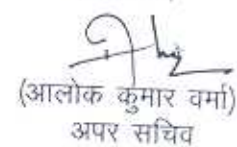 (आलोक कुमार वर्मा)
अपर सचिव